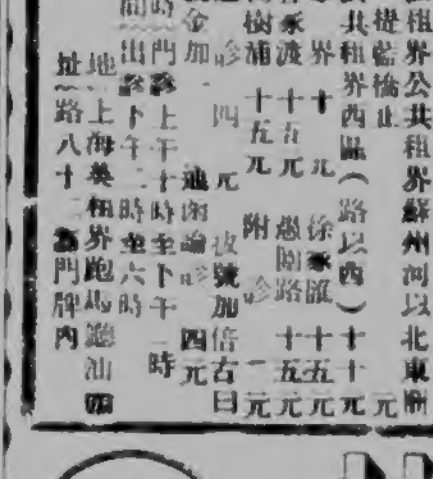 租界公共租界蘇州河以北東
提藍橋止 元
共租界西區（路以西） 十元
界 十元 徐家匯 十五元
家渡 十五元 愚園路 十五元
樹浦 十五元 附診 一元
診 四元 拔號加倍 右曰
金加 通函論診 四元
時 門診 上午十時至下午二時
間 出診 下午二時至六時
地 上海英租界跑馬廳
址 路八十二號門牌內